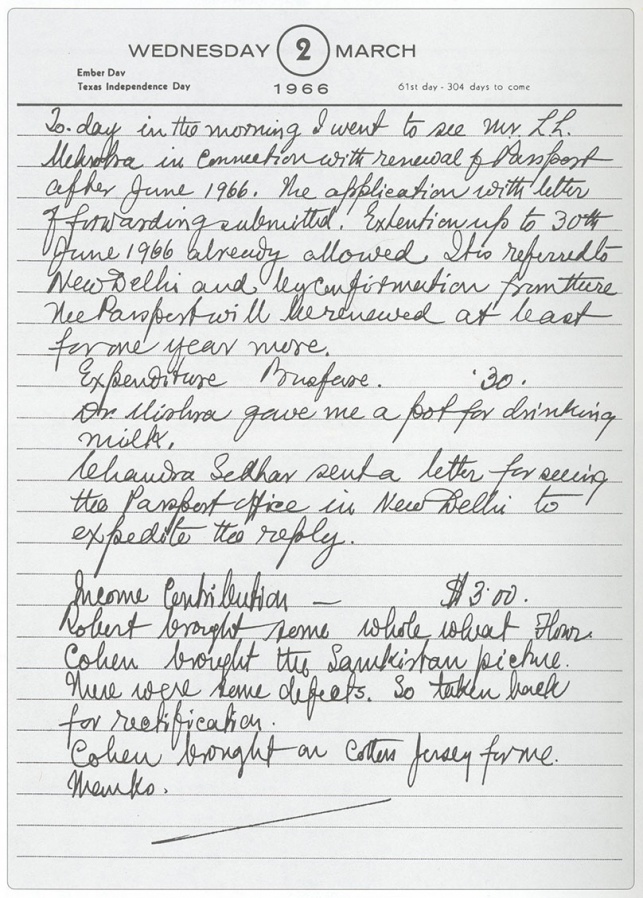 WEDNESDAY 2 MARCH
Ember Day
Texas Independence Day
1966
61st day - 304 days to come
To-day in the morning I went to see Mr. L.L.
Mehrotra in connection with renewal of Passport
after June 1966. The application with letter
of forwarding submitted. Extention up to 30th
June 1966 already allowed. It is referred to
New Delhi and by confirmation from there
The Passport will be renewed at least
for one year more.
Expenditure Busfare. '30.
Dr. Mishra gave me a pot for drinking
milk.
Chandra Sekhar sent a letter for seeing
the Passport office in New Delhi to
expedite the reply.
Income Contribution — $3.00.
Robert brought some whole wheat Flour.
Cohen brought the Samkirtan picture.
There were some defects. So taken back
for rectification.
Cohen brought on Cotten Jersey for me.
Thanks.